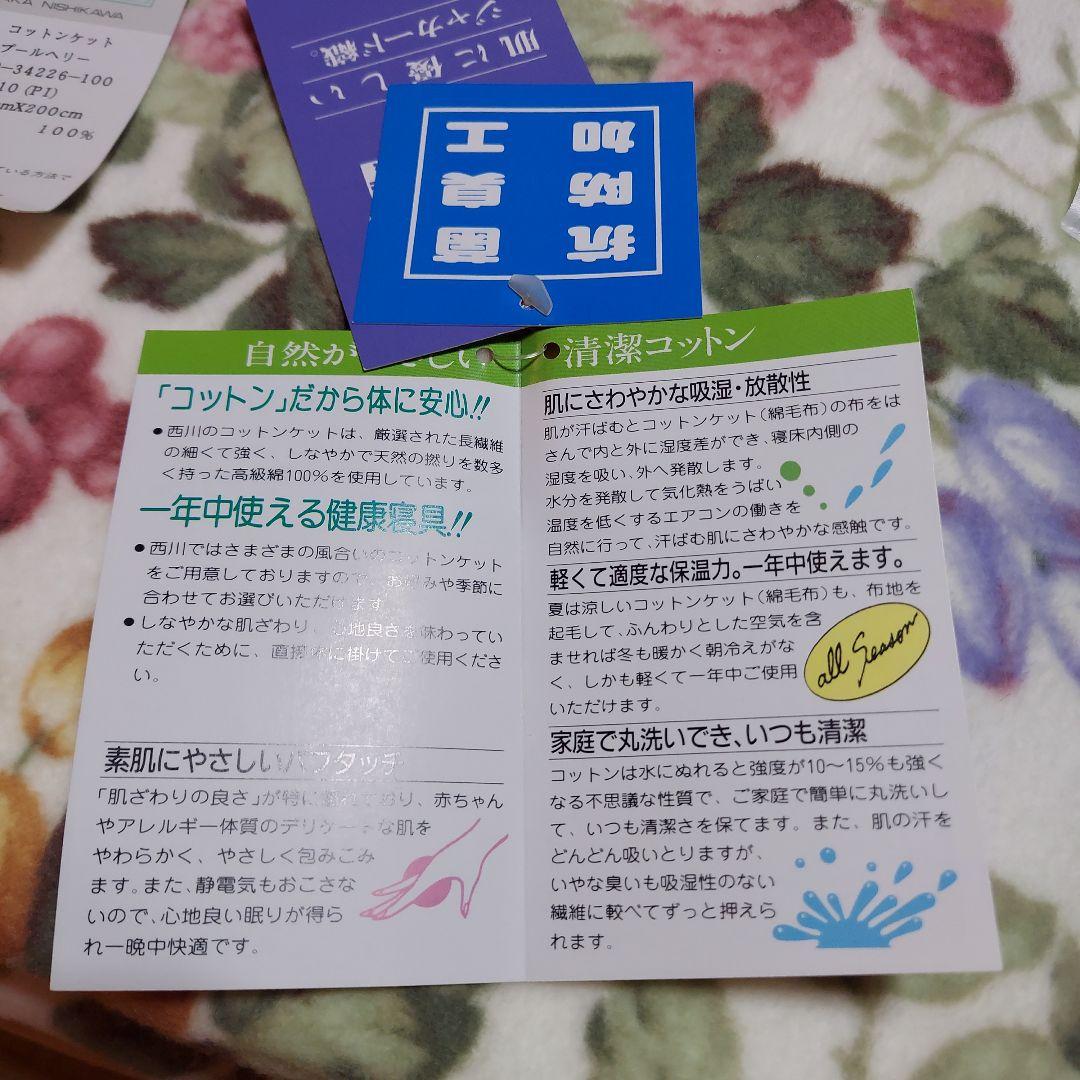 AKA NISHIKAWA
コットンケット
プールヘリー
-34226-100
10 (PI)
mX200cm
100%
ている方法で
肌に優しい
ジャカード織。
抗菌
防臭
加工
自然が
しい
清潔コットン
「コットン」だから体に安心!!
●西川のコットンケットは、厳選された長繊維
の細くて強く、しなやかで天然の撚りを数多
く持った高級綿100%を使用しています。
一年中使える健康寝具!!
●西川ではさまざまの風合いのコットンケット
をご用意しておりますので、お好みや季節に
合わせてお選びいただけます
●しなやかな肌ざわり、心地良さを味わってい
ただくために、直接体に掛けてご使用くださ
い。
素肌にやさしいパフタッチ
「肌ざわりの良さ」が特に優れており、赤ちゃん
やアレルギー体質のデリケートな肌を
やわらかく、やさしく包みこみ
ます。また、静電気もおこさな
いので、心地良い眠りが得ら
れ一晩中快適です。
肌にさわやかな吸湿・放散性
肌が汗ばむとコットンケット(綿毛布)の布をは
さんで内と外に湿度差ができ、寝床内側の
湿度を吸い、外へ発散します。
水分を発散して気化熱をうばい
温度を低くするエアコンの働きを
自然に行って、汗ばむ肌にさわやかな感触です。
軽くて適度な保温力。一年中使えます。
夏は涼しいコットンケット(綿毛布)も、布地を
起毛して、ふんわりとした空気を含
ませれば冬も暖かく朝冷えがな
く、しかも軽くて一年中ご使用
いただけます。
all Season
家庭で丸洗いでき、いつも清潔
コットンは水にぬれると強度が10〜15%も強く
なる不思議な性質で、ご家庭で簡単に丸洗いし
て、いつも清潔さを保てます。また、肌の汗を
どんどん吸いとりますが、
いやな臭いも吸湿性のない
繊維に較べてずっと押えら
れます。